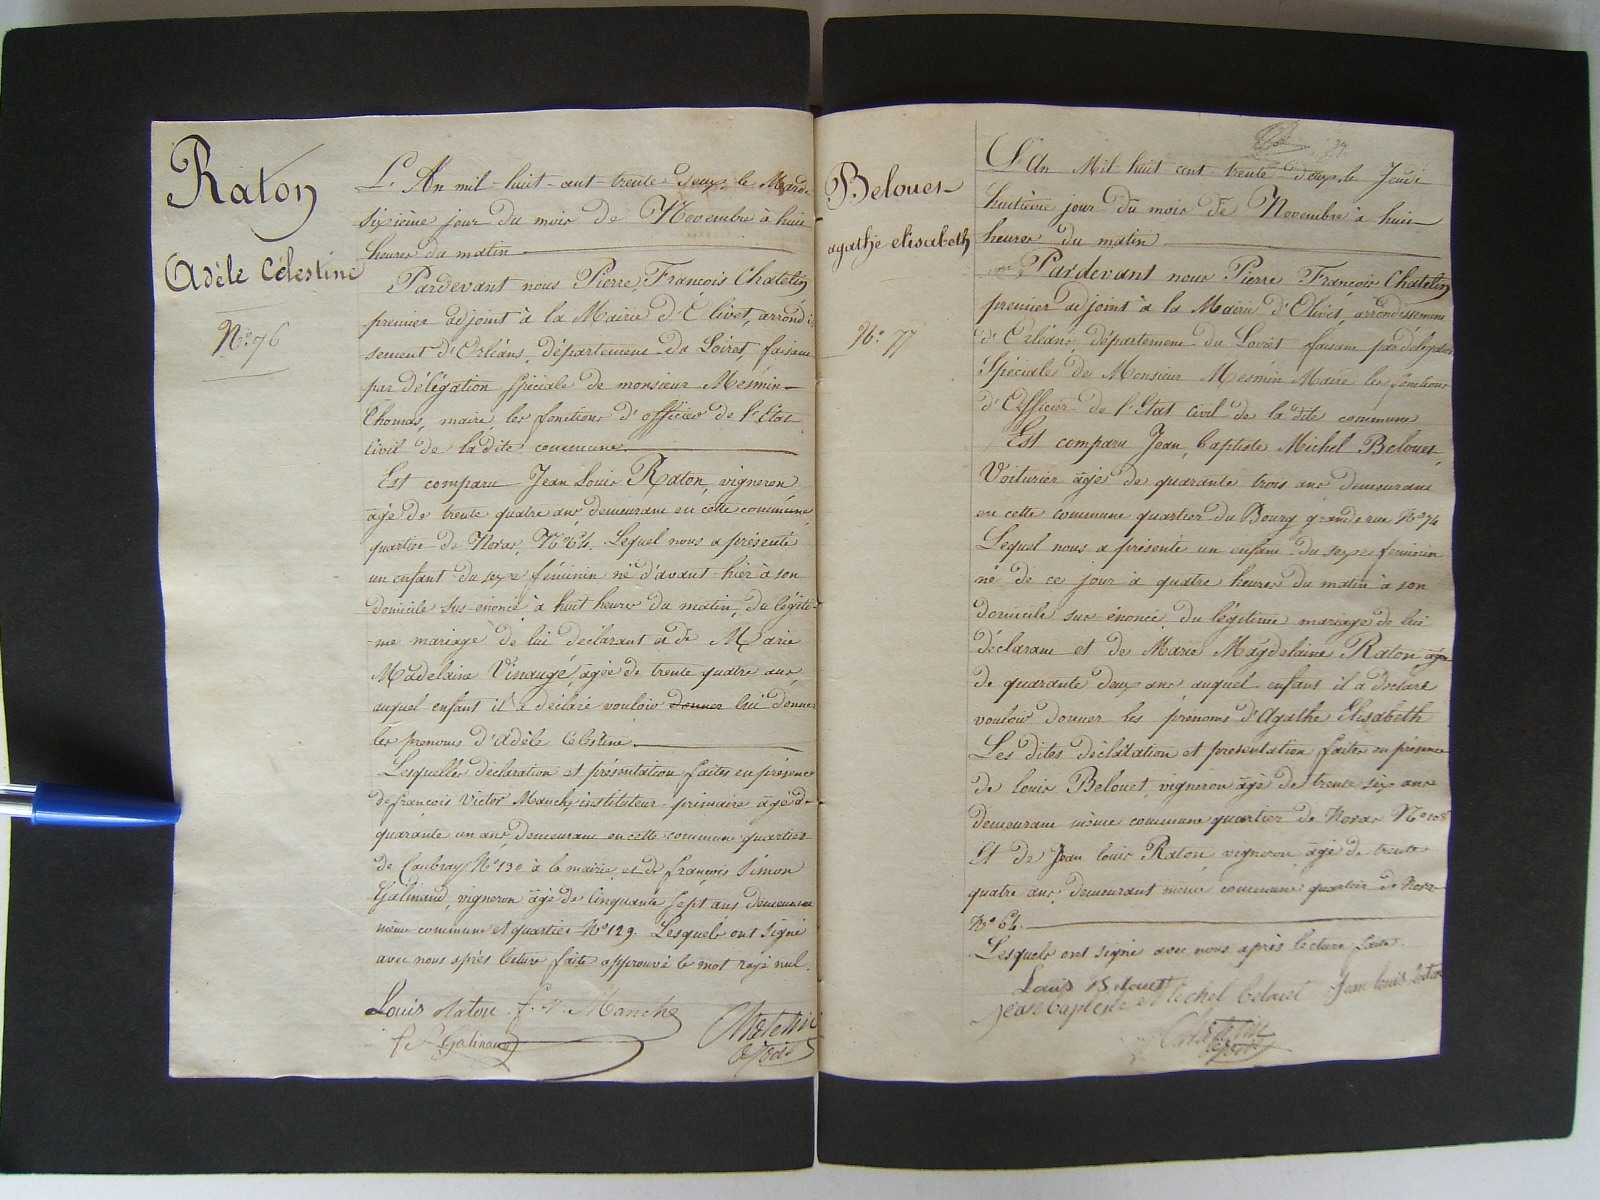 Raton
Adèle Célestine
N° 76
L'An mil huit cent trente deux, le Mardi
sixième jour du mois de Novembre à huit
heures du matin
Pardevant nous Pierre François Chatelin
premier adjoint à la Mairie d'Olivet, arrondis
sement d'Orléans, département du Loiret, faisant
par délégation spéciale de monsieur Mesmin
Thomas, maire, les fonctions d'officier de l'Etat
civil de la dite commune.
Est comparu Jean Louis Raton, vigneron
âgé de trente quatre ans demeurant en cette commune
quartier de Noras, N° 64. Lequel nous a présenté
un enfant du sexe féminin né d'avant-hier à son
domicile sus-énoncé à huit heures du matin, du légiti-
-me mariage de lui déclarant et de Marie
Madelaine Vinaugé, agée de trente quatre ans,
auquel enfant il a déclaré vouloir donner lui donner
les prenoms d'Adèle Célestine.
Lesquelles déclaration et présentation faites en présence
de françois Victor Manche instituteur primaire âgé de
quarante un ans, demeurant en cette commune quartier
de Caubray N° 130 à la mairie et de françois Simon
Galinand, vigneron âgé de cinquante sept ans demeurant
même commune et quartier N° 129. Lesquels ont signé
avec nous après lecture faite approuvé le mot rayé nul.
Louis Raton f. V. Manche
f S Galinand
Chatelin
adjoint
Belouet
agathe elisabeth
N° 77
L'An Mil huit cent trente deux, le Jeudi
huitième jour du mois de Novembre à huit
heures du matin
Pardevant nous Pierre François Chatelin
premier adjoint à la Mairie d'Olivet, arrondissement
d'Orléans, département du Loiret faisant par délégation
Spéciale de Monsieur Mesmin Maire les fonctions
d'Officier de l'Etat civil de la dite commune
Est comparu Jean, baptiste Michel Belouet,
Voiturier âgé de quarante trois ans demeurant
en cette commune quartier du Bourg grande rue N° 74
Lequel nous a présenté un enfant du sexe féminin
né de ce jour à quatre heures du matin à son
domicile sus énoncé, du légitime mariage de lui
déclarant et de Marie Magdelaine Raton agée
de quarante deux ans auquel enfant il a déclaré
vouloir donner les prénoms d'Agathe Elisabeth
Les dites déclaration et presentation faites en présence
de louis Belouet, vigneron âgé de trente six ans
demeurant même commune quartier de Noras N° 108
Et de Jean louis Raton, vigneron âgé de trente
quatre ans, demeurant même commune quartier de Noras
N° 64.
Lesquels ont signé avec nous après lecture faite.
Louis Belouet
jean baptiste Michel belouet Jean louis Raton
Chatelin
adjoint